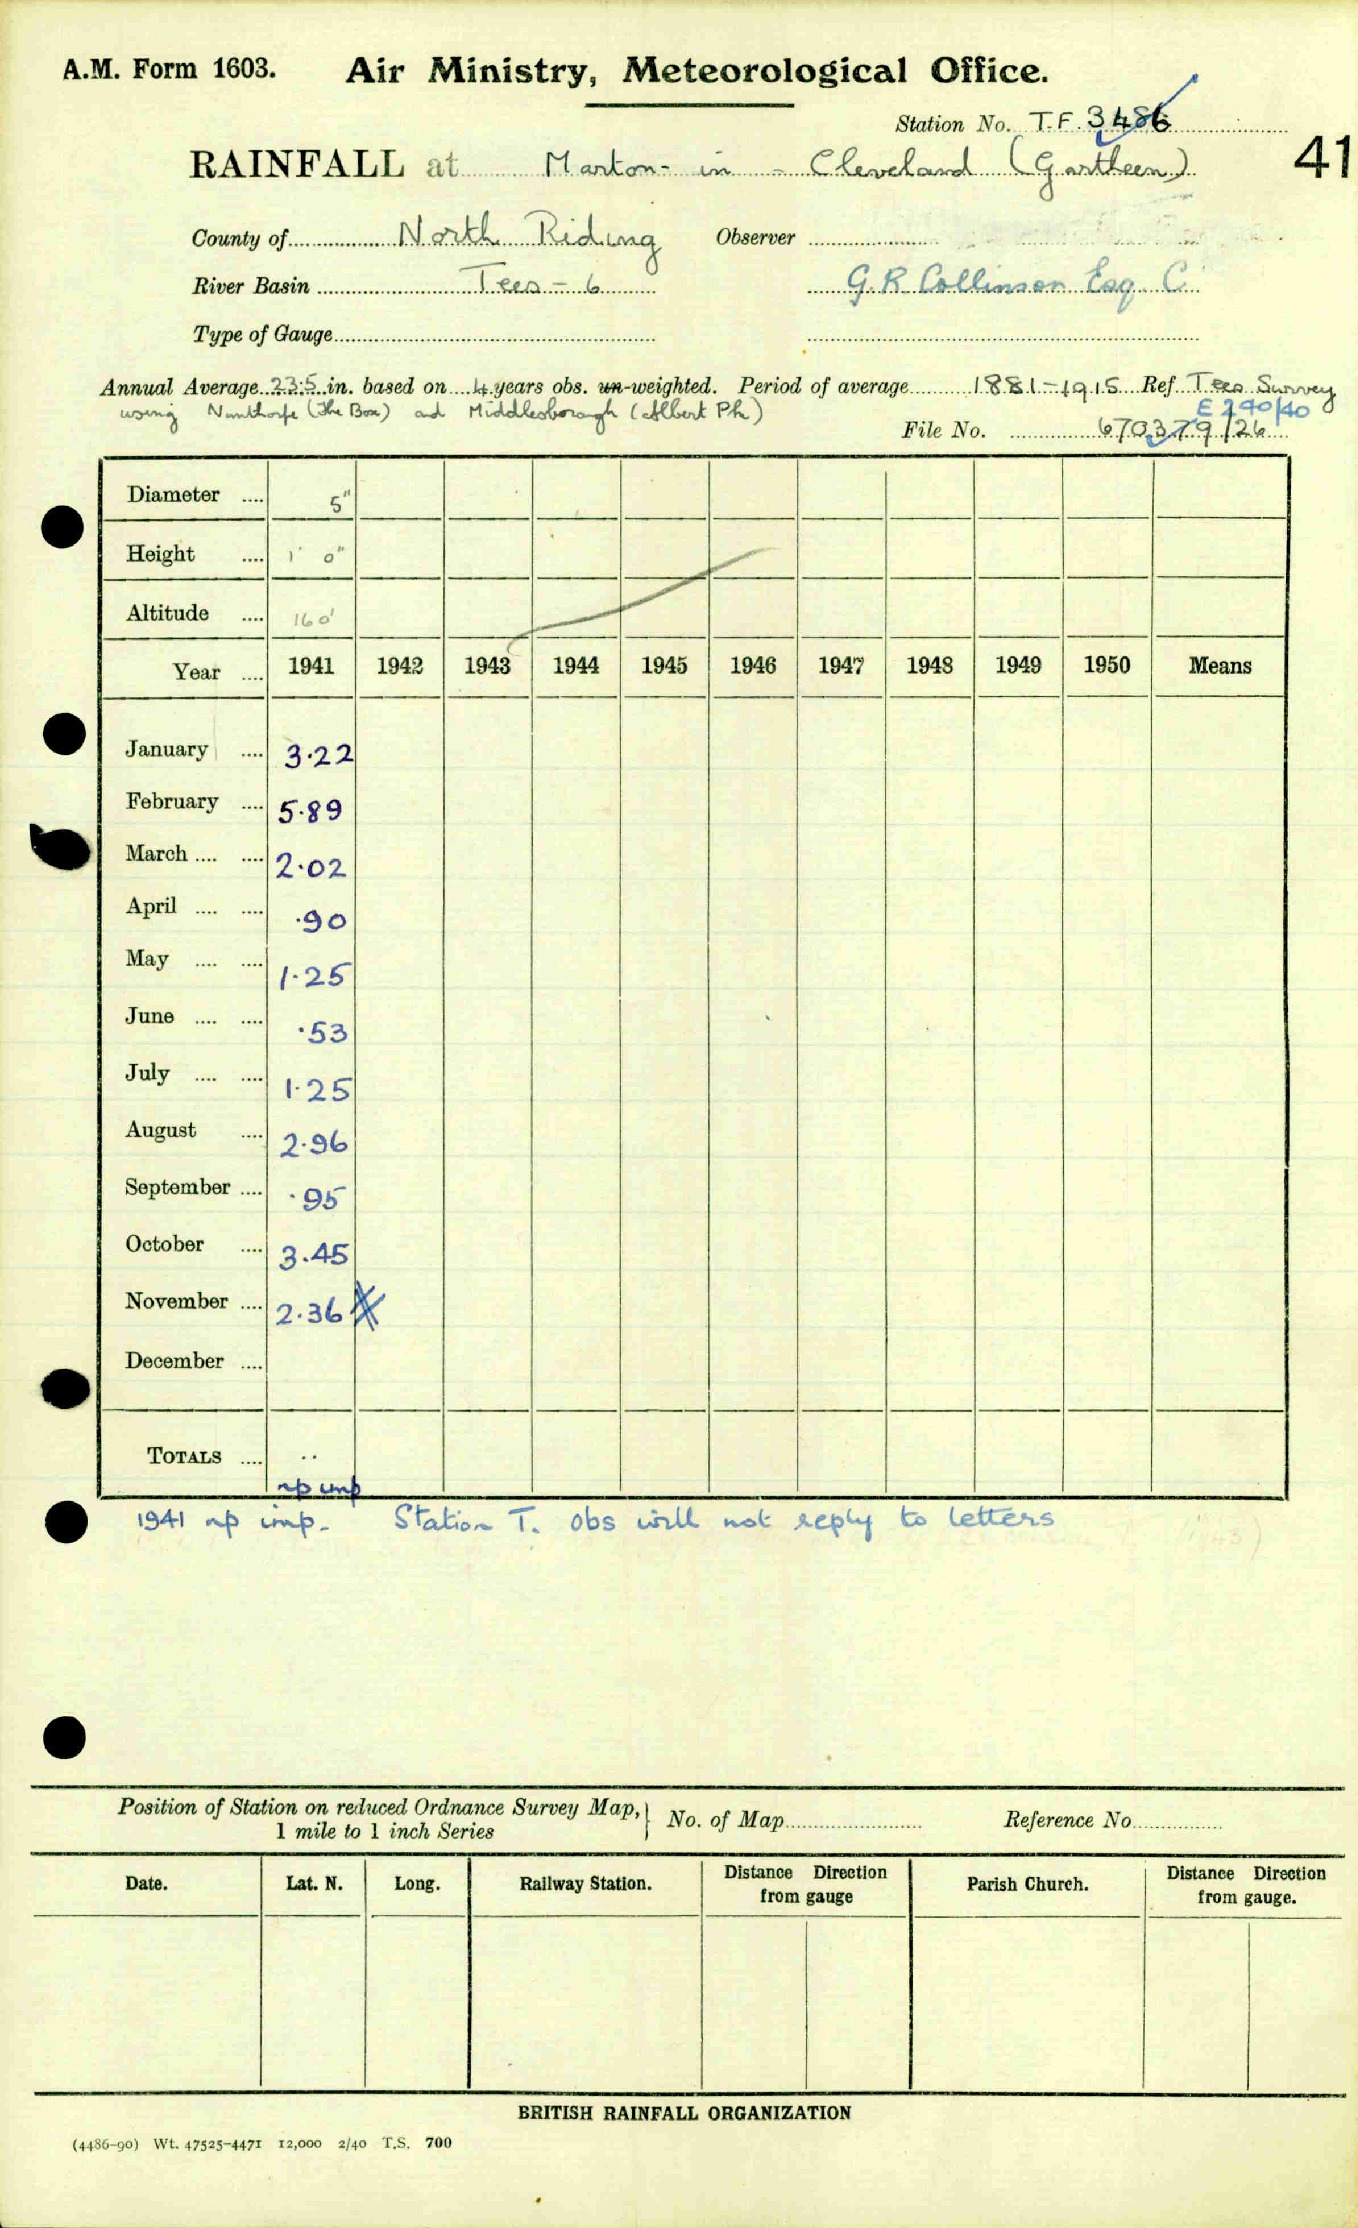 A.M. Form 1603. Air Ministry, Meteorological Office.
Station No. T.F. 3486
RAINFALL at Marton-in-Cleveland (Gartheen)
41
County of North Riding Observer
River Basin Tees-6 G.R Collinson Esq. C
Type of Gauge
Annual Average 23.5 in. based on 4 years obs. un-weighted. Period of average 1881-1915 Ref Tees Survey
using Nunthorpe (The Box) and Middlesborough (Albert Pk)
E 240/40
File No. 670379/26
Diameter .... 5"
Height .... 1' 0"
Altitude .... 160'
Year .... 1941 1942 1943 1944 1945 1946 1947 1948 1949 1950 Means
January .... 3.22
February .... 5.89
March .... .... 2.02
April .... .... .90
May .... .... 1.25
June .... .... .53
July .... .... 1.25
August .... 2.96
September .... .95
October .... 3.45
November .... 2.36
December ....
TOTALS .... ..
np imp
1941 np imp. Station T. obs will not reply to letters
Position of Station on reduced Ordnance Survey Map,
1 mile to 1 inch Series
No. of Map Reference No.
Date. Lat. N. Long. Railway Station. Distance Direction from gauge Parish Church. Distance Direction from gauge.
BRITISH RAINFALL ORGANIZATION
(4486-90) Wt. 47525-4471 12,000 2/40 T.S. 700